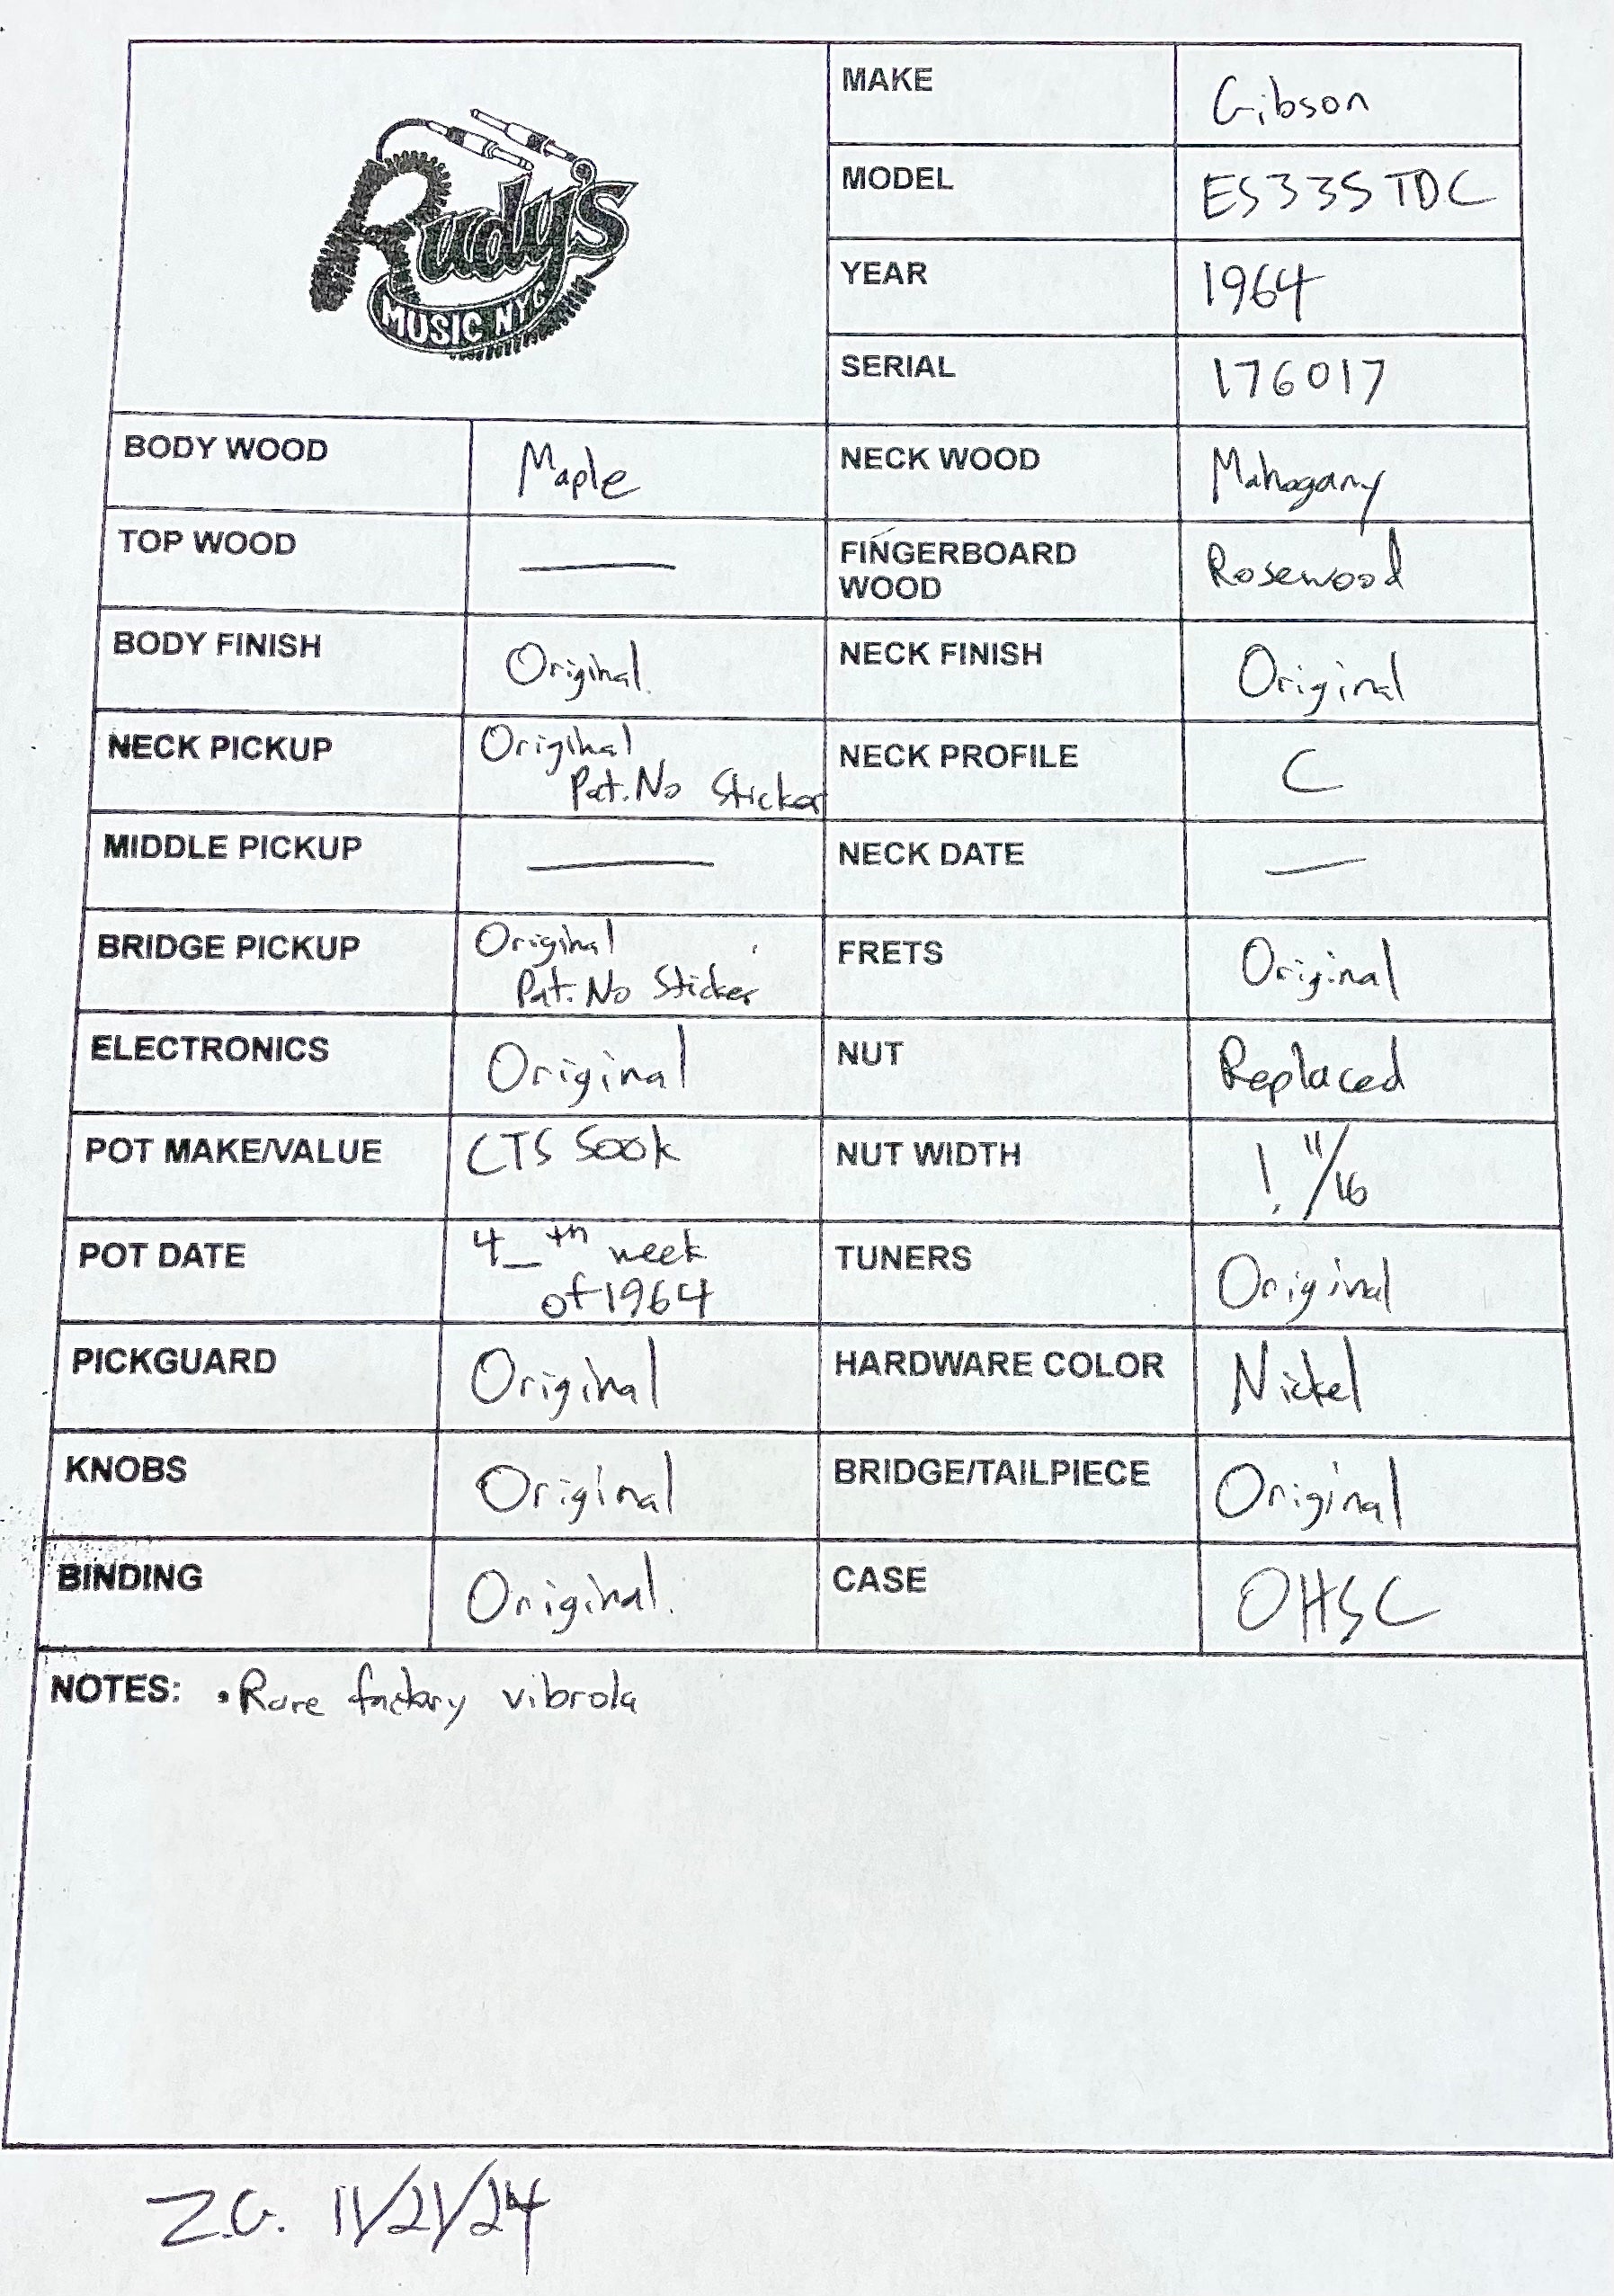 Rudy's
MUSIC NYC
MAKE Gibson
MODEL ES335TDC
YEAR 1964
SERIAL 176017
BODY WOOD Maple NECK WOOD Mahogany
TOP WOOD — FINGERBOARD
WOOD Rosewood
BODY FINISH Original. NECK FINISH Original
NECK PICKUP Original
Pat. No Sticker NECK PROFILE C
MIDDLE PICKUP — NECK DATE —
BRIDGE PICKUP Original
Pat. No Sticker FRETS Original
ELECTRONICS Original NUT Replaced
POT MAKE/VALUE CTS 500k NUT WIDTH 1 11/16
POT DATE 4_th week
of 1964 TUNERS Original
PICKGUARD Original HARDWARE COLOR Nickel
KNOBS Original BRIDGE/TAILPIECE Original
BINDING Original. CASE OHSC
NOTES: • Rare factory vibrola
Z.G. 11/21/24